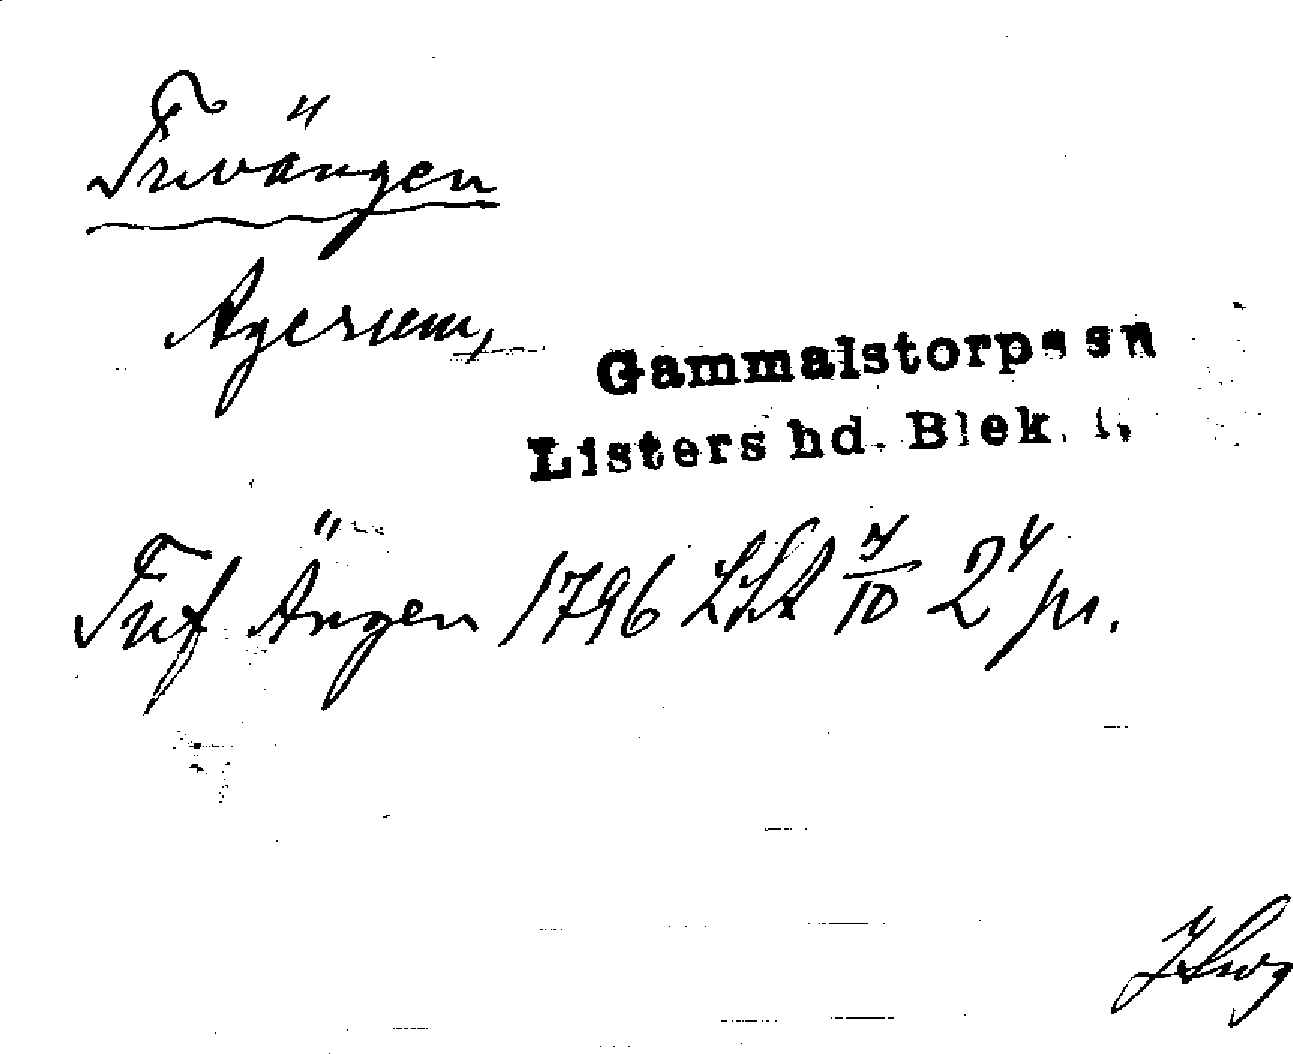 Truvängen
Agerum,
Gammalstorps sn
Listers hd. Blek. l.
Truf Ängen 1796 LSA 7/10 2 4 pr.